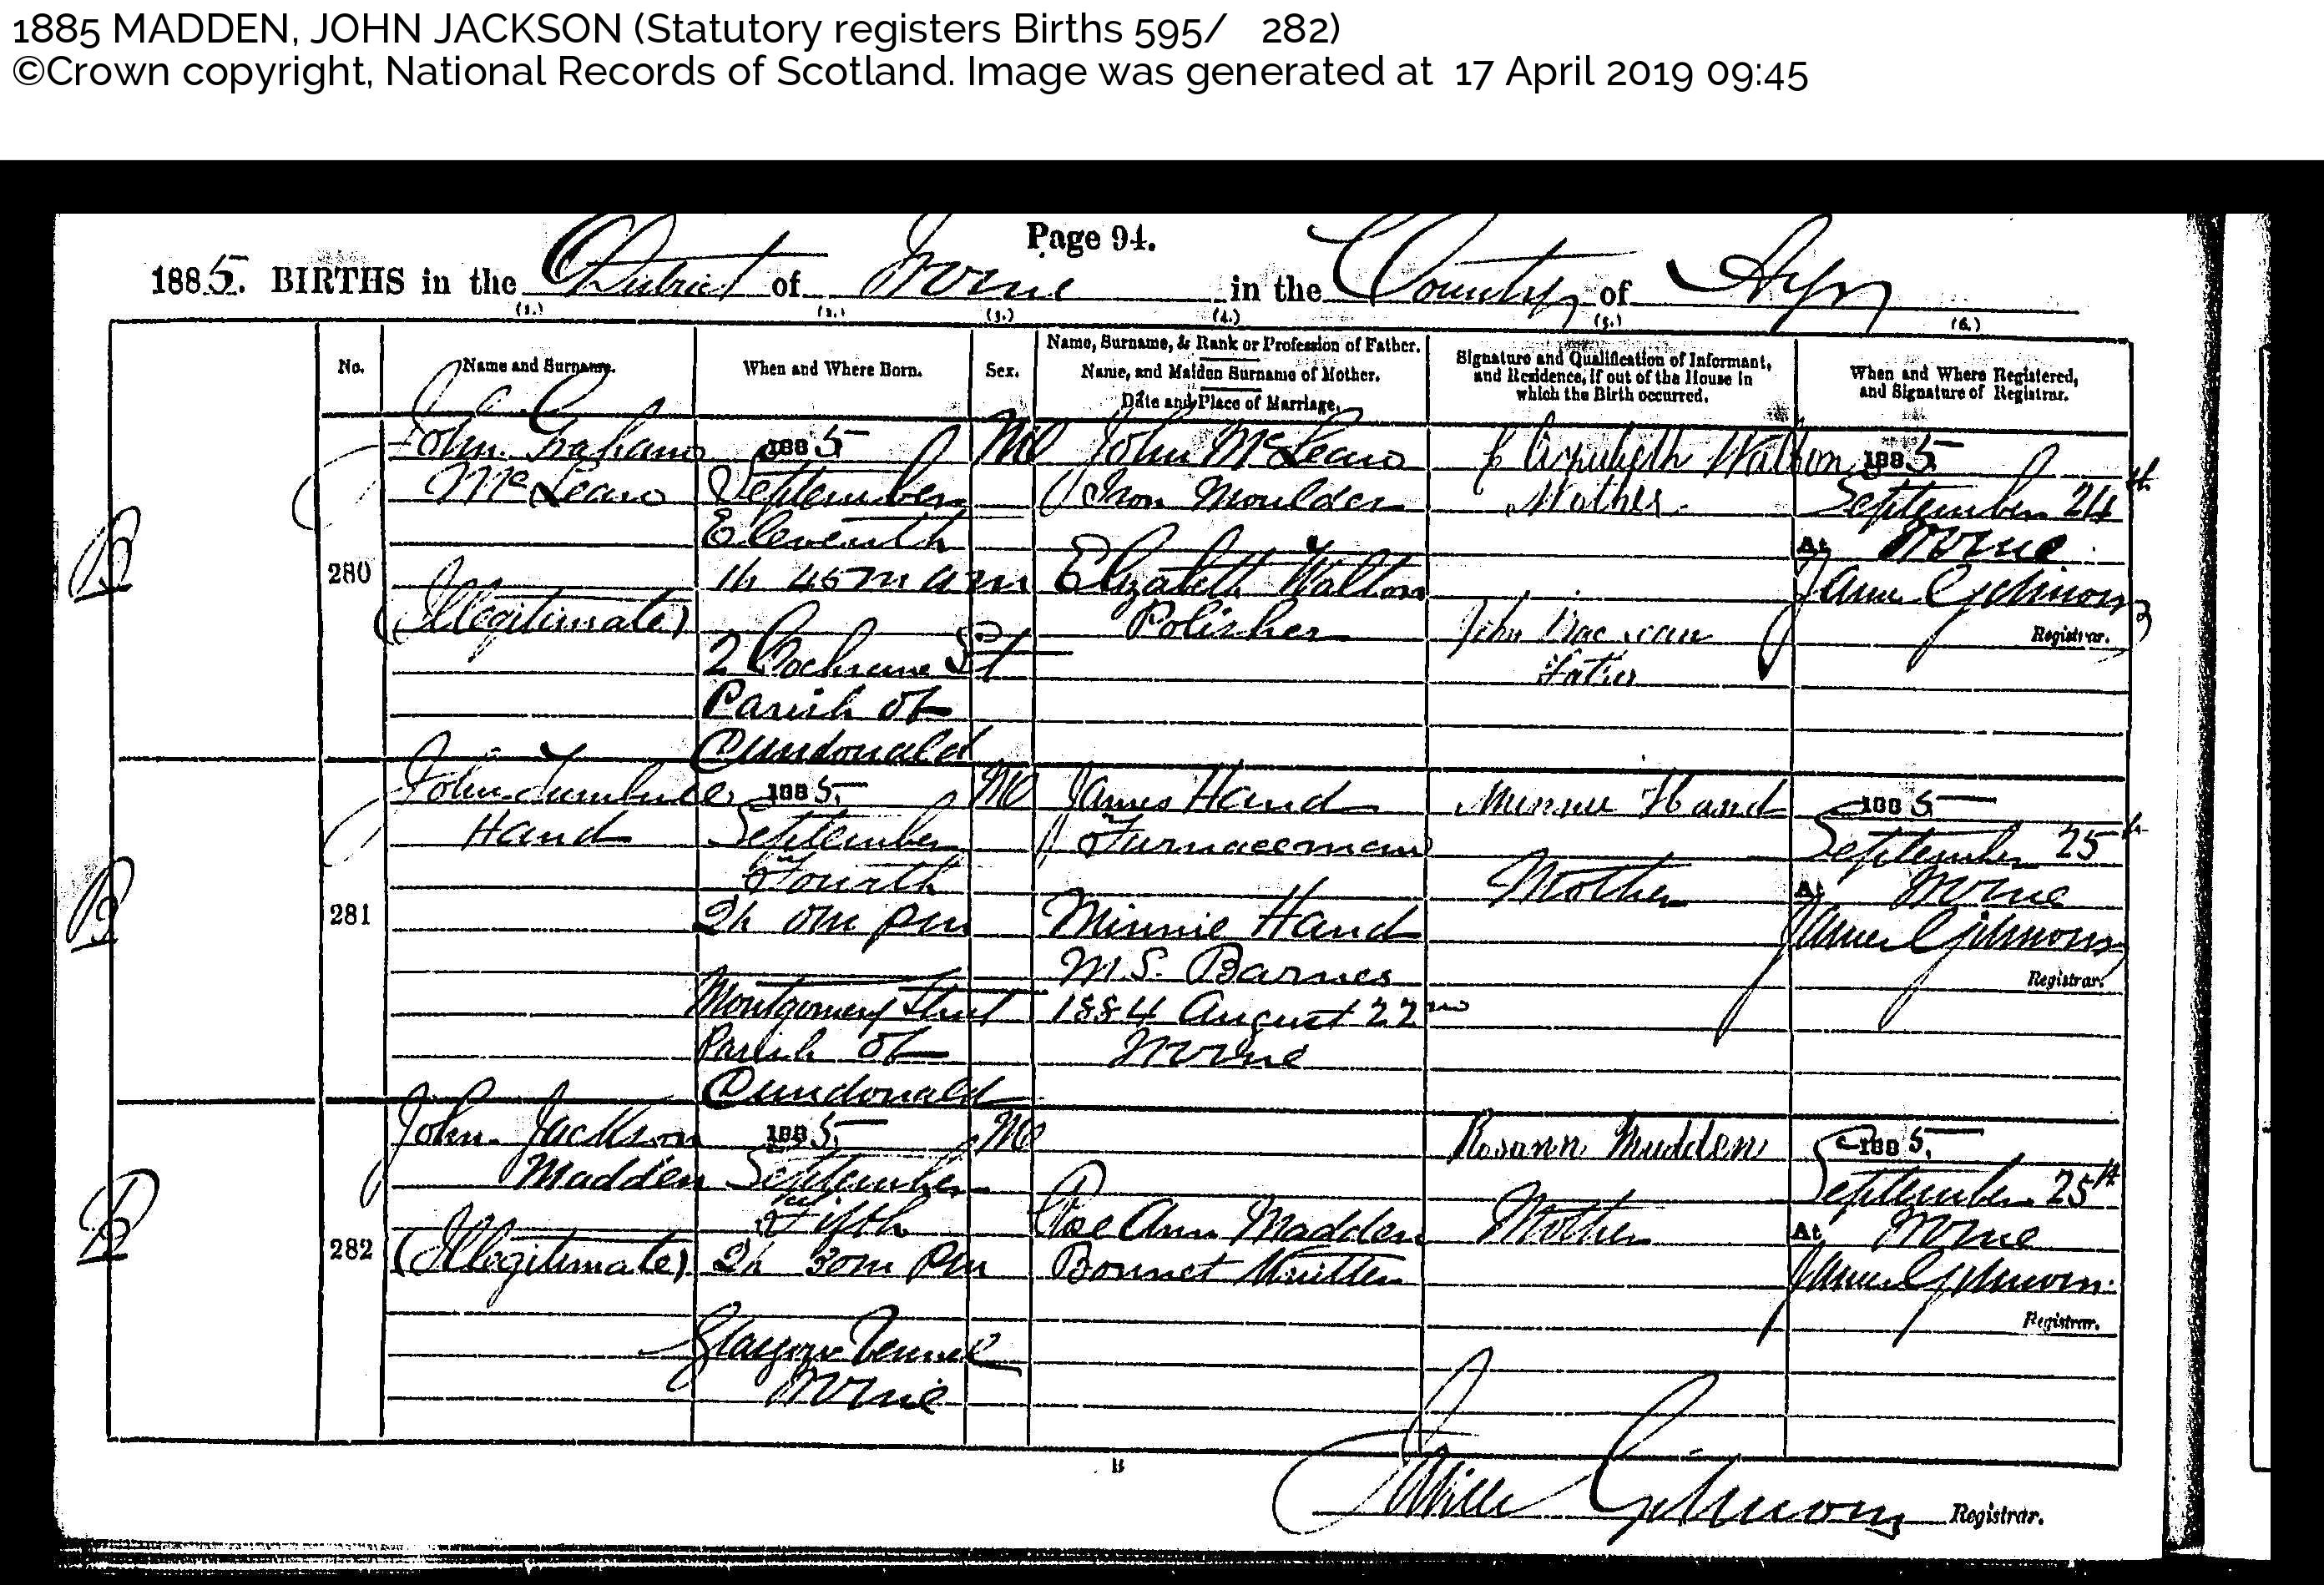 1885 MADDEN, JOHN JACKSON (Statutory registers Births 595/ 282)
©Crown copyright, National Records of Scotland. Image was generated at 17 April 2019 09:45
Page 94.
1885. BIRTHS in the District of Irvine in the County of Ayr
(1.) (2.) (3.) (4.) (5.) (6.)
No.
Name and Surname.
When and Where Born.
Sex.
Name, Surname, & Rank or Profession of Father.
Name, and Maiden Surname of Mother.
Date and Place of Marriage.
Signature and Qualification of Informant,
and Residence, if out of the House in
which the Birth occurred.
When and Where Registered,
and Signature of Registrar.
280
John Graham
McLean
(Illegitimate)
1885
September
Eleventh
1h 45m am
2 Cochrane St
Parish of
Dundonald
M
John McLean
Iron Moulder
Elizabeth Walton
Polisher
Elizabeth Walton
Mother
John MacLean
Father
1885
September 24th
At Irvine
James Gilmour
Registrar.
281
John Turnbull
Hand
1885
September
Fourth
2h 0m pm
Montgomery Street
Parish of
Dundonald
M
James Hand
Furnaceman
Minnie Hand
M.S. Barnes
1884 August 22nd
Irvine
Minnie Hand
Mother
1885
September 25th
At Irvine
James Gilmour
Registrar.
282
John Jackson
Madden
(Illegitimate)
1885
September
Fifth
2h 30m pm
Glasgow Vennel
Irvine
M
Rose Ann Madden
Bonnet Knitter
Rosann Madden
Mother
1885
September 25th
At Irvine
James Gilmour
Registrar.
B
Gilmour Registrar.